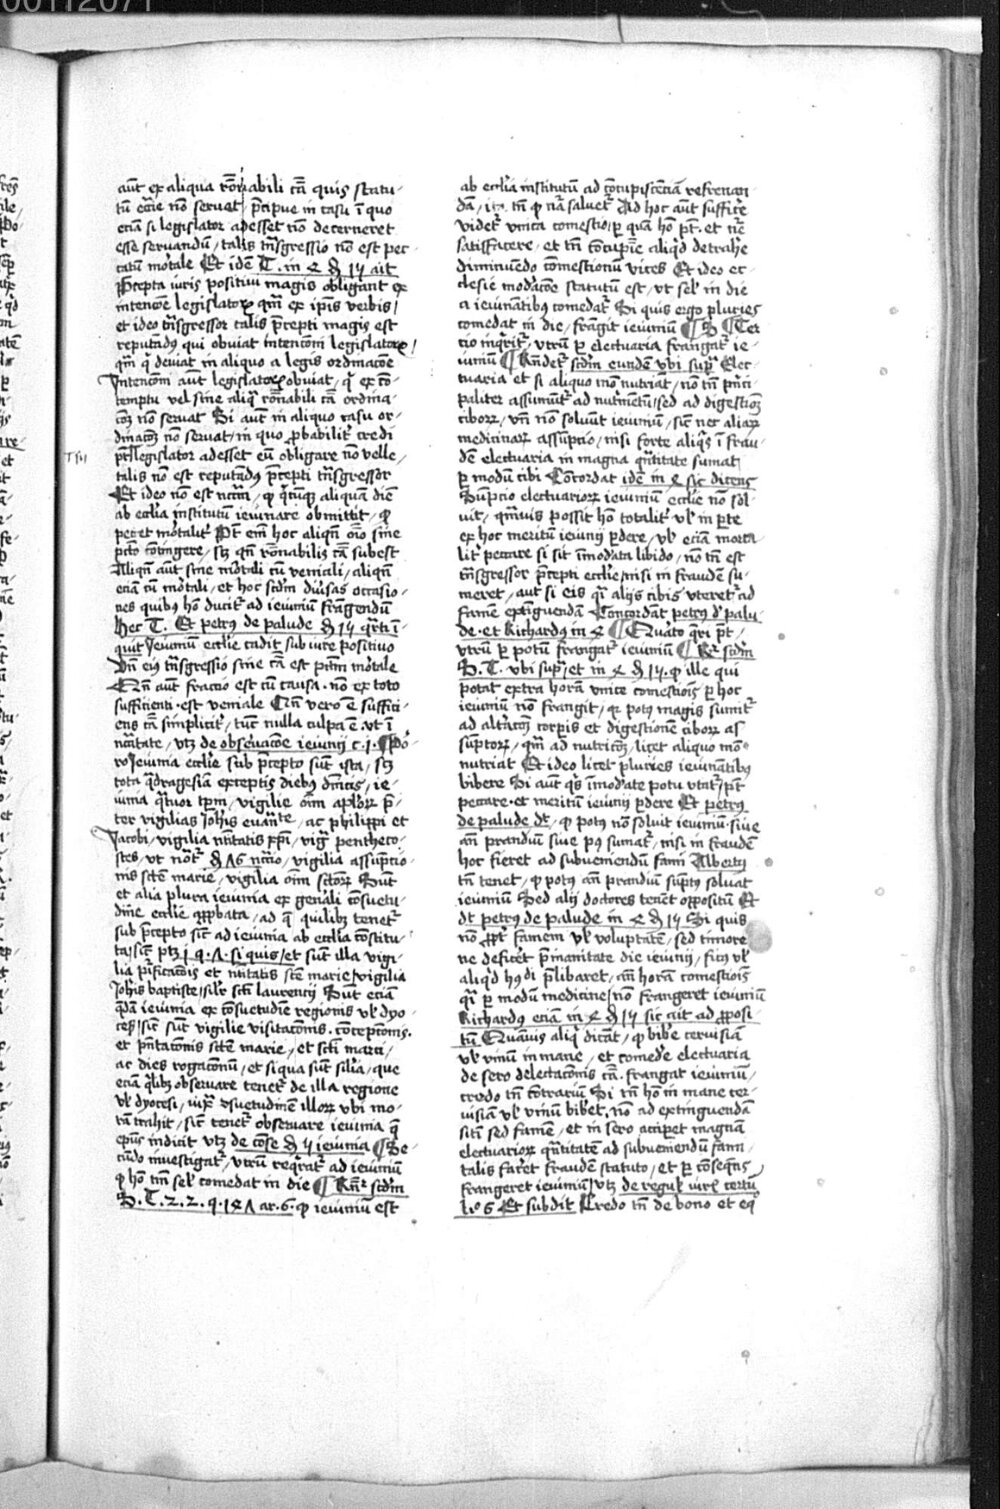 aut ex aliqua rōnabili cā quis statu-
tū ecclīe nō servat p̄cipue in casu ī quo
eciā si legislator adesset nō decerneret
esse servandū, talis tn̄sgressio nō est pec-
catū mōrtale Et idē T. in 4 d 15 ait
Precepta iuris positivi magis obligant ex
intencōe legislatorꝝ qm̄ ex ip̄is verbis /
et ideo tn̄sgressor talis p̄cepti magis est
reputādꝰ qui obviat intencōni legislatorꝝ /
qm̄ q̄ deviat in aliquo a legis ordinacōe
Intencōni aut legislatorꝝ obviat, q̄ ex cō-
temptu vel sine aliq̄ rōnabili cā ordina-
cōꝫ nō servat Si aut in aliquo casu or-
dinacōꝫ nō servat, in quo ꝓbabilit̄ credi
pt̄ legislator adesset eū obligare nō velle,
talis nō est reputādꝰ p̄cepti tn̄sgressor
Et ideo nō est
ab ecclīa institutū ieiunare obmittit, ꝙ
peccet mōrtalit̄ Pt̄ em̄ hoc aliqn̄ oīo sine
pctō cōtingere, scꝫ qn̄ rōnabilis cā subest
Aliqn̄ aut sine mōrtali cū veniali, aliqn̄
eciā cū mōrtali, et hoc scd̄m diūsas occasio-
nes quibus hō ducit̄ ad ieiuniū frāgendū
Hec T. Et petrꝰ de palude d 15 q̄rti ī-
quit Ieiuniū ecclīe cadit sub iure positivo
Vn̄ eiꝰ tn̄sgressio sine cā est pctm̄ mōrtale
Qn̄ aut fractio est cū causa. nō ex toto
sufficienti. est veniale Qn̄ vero ē suffici-
ens cā simplicit̄, tūc nulla culpa ē. ut ī
utꝫ de observacōe ieiunij c. j.
ieiunia ecclīe sub p̄cepto sūt ista, scꝫ
tota q̄dragesīa exceptis diebꝰ dn̄icis, ie-
iunia q̄tuor tpm̄, vigilie oīm aplorꝝ p̄-
ter vigilias Iohīs evanīte, ac philippi et
Jacobi, vigilia nativitatis xp̄i, viḡ pentheco-
stes, ut not̄ d vigilia assūptio-
nis sctē marie, vigilia oīm sctōrꝝ Sūt
et alia plura ieiunia ex gen̄ali cōsuetu-
dīne ecclīe app̄bata, ad q̄ quilibꝫ tenet̄
sub p̄cepto sic̄ ad ieiunia ab ecclīa cōstitu-
ta, sic̄ ptꝫ si quis, et sūt illa vigi-
lia pūficacōis et nativitatis sctē marie, vigilia
Iohīs baptiste, silr̄ scti laurencij Sūt eciā
q̄dā ieiunia ex cōsuetudīe regionis vl̄ dyo-
ces, sic̄ sūt vigilie visitacōnis. cōcepcōnis.
et pn̄tacōnis sctē marie, et scti marci,
ac dies rogacōnū, et si qua sūt silīa, que
eciā q̄libꝫ observare tenet̄ de illa regione
vl̄ dyocesi, iuxᵃ ꝯsuetudinē illorꝝ ubi mo-
rā trahit, sic̄ tenet̄ observare ieiunia q̄
ep̄us indicit utꝫ de cōse d 5 ieiunia ¶ Se-
cūdo investigat̄, utrū req̄rat̄ ad ieiuniū
ꝙ hō tm̄ sel̄ comedat in die ¶ Rn̄t̄ scd̄m
S. T. 2. 2. q. 147 ar. 6. ꝙ ieiuniū est
ab ecclīa institutū ad cōcupiscēciā refrenan-
dā, ita tn̄ ꝙ nā salvet̄ Ad hoc aut suffic̄e
videt̄ unica comestio, p̄ quā hō pt̄. et nē
satisfacere, et tn̄ cōcupīe aliqd̄ detrahe
diminuēdo comestionū vices Et ideo ec-
clesie mod̄acōe statutū est, ut sel̄ in die
a ieiunātibꝰ comedat̄ Si quis ergo pluries
comedat in die, frāgit ieiuniū ¶ Ter-
cio inq̄rit̄, utrū p̄ electuaria frangat̄ ie-
iuniū ¶ Rn̄det̄ scd̄m eundē ubi sup̄ Elec-
tuaria et si aliquo mō nutriāt, nō tn̄ p̄nci-
palit̄ assumūt̄ ad nut̄mētū, sed ad digestiōꝫ
ciborꝝ, vn̄ nō solvūt ieiuniū, sic̄ nec aliarꝝ
medicinarꝝ assūptio, nisi forte aliq̄s ī frau-
dē electuaria in magna q̄ntitate sumat
p̄ modū cibi Cōcordat idē in 4 sic dicens
Sūptio electuariorꝝ ieiuniū ecclīe nō sol-
vit, qm̄vis possit hō totalit̄ vl̄ in p̄te
ex hoc meritū ieiunij p̄dere, vl̄ eciā morta-
lit̄ peccare si sit īmod̄ata libido, nō tn̄ est
tn̄sgressor p̄cepti ecclīe, nisi in fraudē su-
meret, aut si eis q̄i alijs cibis uteret̄ ad
famē extīguendā Concordāt petrꝰ d̄ palu-
de. et Richardꝰ in 4 ¶ Quarto q̄ri pt̄,
utrū p̄ potū frangat̄ ieiuniū ¶ Rᵗ scd̄m
S. T. ubi sup̄, et in 4 d 15. ꝙ ille qui
potat extra horā unice comestiōis p̄ hoc
ieiuniū nō frangit, qꝛ potꝰ magis sumit̄
ad alt̄acōꝫ corp̄is et digestionē ciborꝝ as-
sūptorꝝ, qm̄ ad nutricōꝫ, licet aliquo mō
nutriat Et ideo licet pluries ieiunātibꝰ
bibere Si aut q̄s īmod̄ate potu utat̄, pt̄
peccare. et meritū ieiunij p̄dere Et petrꝰ
de palude dt̄, ꝙ potꝰ nō solvit ieiuniū. sive
an̄ prandiū sive pꝰ sumat̄, nisi in fraudē
hoc fieret ad subveniendū fami Albertꝰ
tn̄ tenet, ꝙ potꝰ an̄ prandiū sūptꝰ solvat
ieiuniū Sed alij doctores tenēt oppositū Et
dt̄ petrꝰ de palude in 4 d 15 Si quis
nō ꝓpt̄ famem vl̄ voluptatē, sed timore
ne deficet p̄ inanitate die ieiunij, ficꝰ vl̄
aliqd̄ hꝰdi p̄libaret, an̄ horā comestiōis
q̄i p̄ modū medicine, nō frangeret ieiuniū
Richardꝰ eciā in 4 d 15 sic ait ad ꝓposi-
tū Quāvis aliq̄ dicāt, ꝙ bibe cervisiā
vl̄ vinū in mane, et comed̄e electuaria
de sero delectacōnis cā. frangat ieiuniū,
credo tn̄ cōtrariū Si tn̄ hō in mane cer-
visiā vl̄ vinū bibet. nō ad extinguendā
sitī sed famē, et in sero accip̄et magnā
electuariorꝝ q̄ntitatē ad subveniendū fami
talis facet fraudē statuto, et p̄ cōseq̄ns
frangeret ieiuniū, utꝫ de regul̄ iurꝭ certū
li° 6 Et subdit Credo tn̄ de bono et eq̄